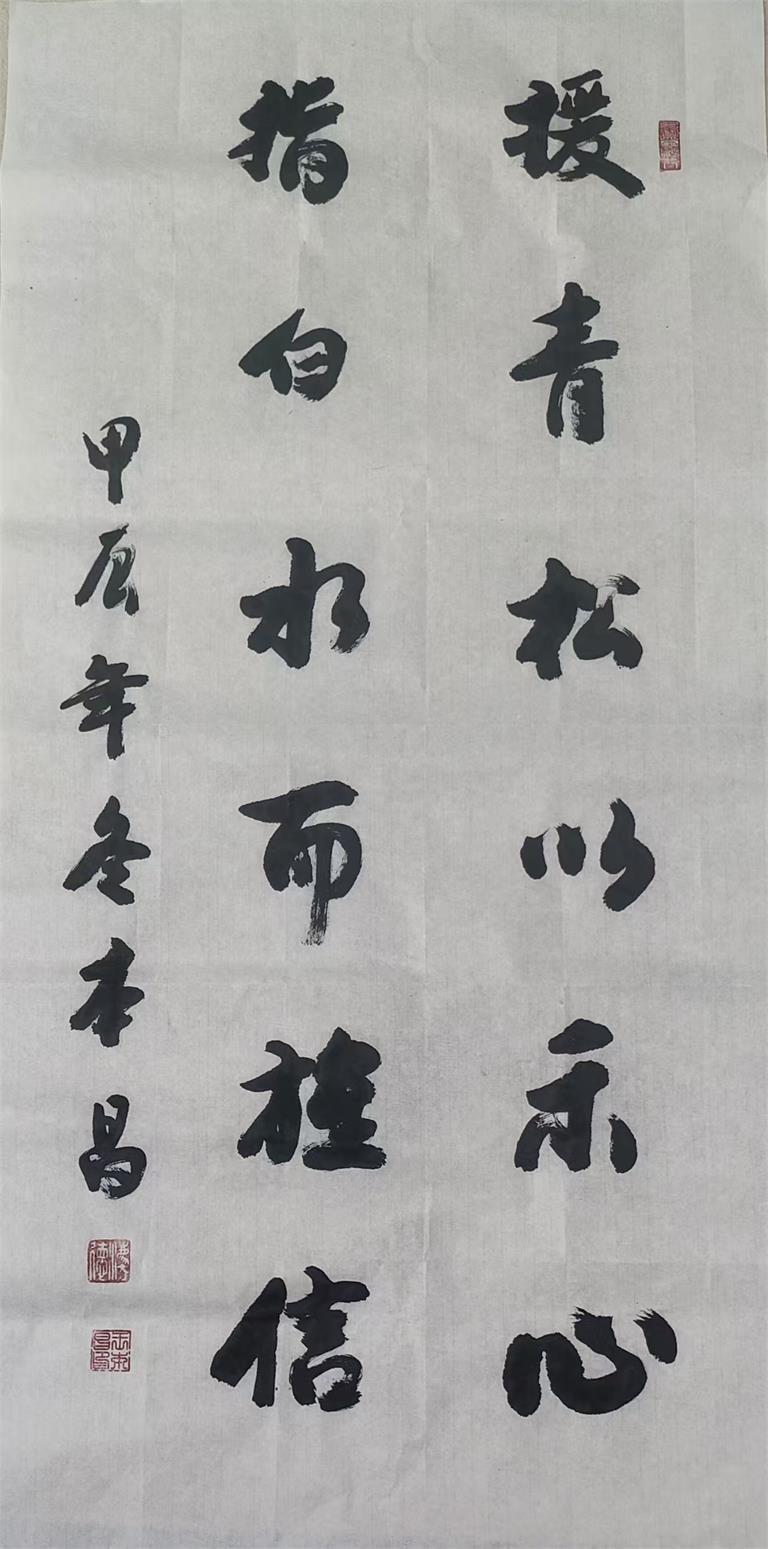 援青松以示心
指白水而旌信
甲辰年冬本昌